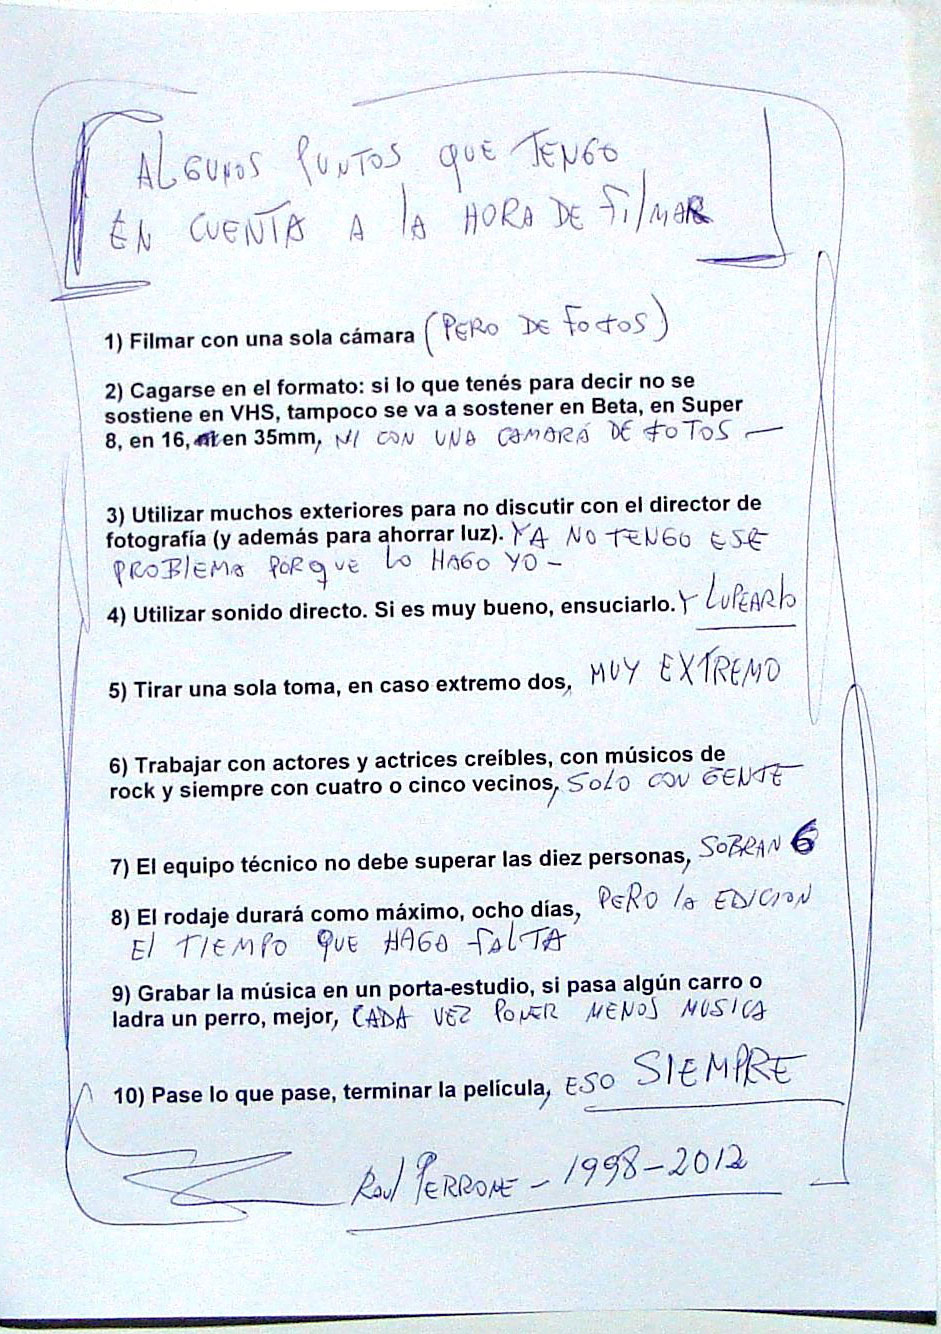 ALGUNOS PUNTOS QUE TENGO
EN CUENTA A LA HORA DE FILMAR
1) Filmar con una sola cámara (PERO DE FOTOS)
2) Cagarse en el formato: si lo que tenés para decir no se
sostiene en VHS, tampoco se va a sostener en Beta, en Super
8, en 16, en 35mm, NI CON UNA CAMARA DE FOTOS —
3) Utilizar muchos exteriores para no discutir con el director de
fotografía (y además para ahorrar luz). YA NO TENGO ESE
PROBLEMA PORQUE LO HAGO YO –
4) Utilizar sonido directo. Si es muy bueno, ensuciarlo. Y LUPEARLO
5) Tirar una sola toma, en caso extremo dos, MUY EXTREMO
6) Trabajar con actores y actrices creíbles, con músicos de
rock y siempre con cuatro o cinco vecinos, SOLO CON GENTE
7) El equipo técnico no debe superar las diez personas, SOBRAN 6
8) El rodaje durará como máximo, ocho días, PERO LA EDICION
EL TIEMPO QUE HAGA FALTA
9) Grabar la música en un porta-estudio, si pasa algún carro o
ladra un perro, mejor, CADA VEZ PONER MENOS MUSICA
10) Pase lo que pase, terminar la película, ESO SIEMPRE
RAUL PERRONE – 1998–2012